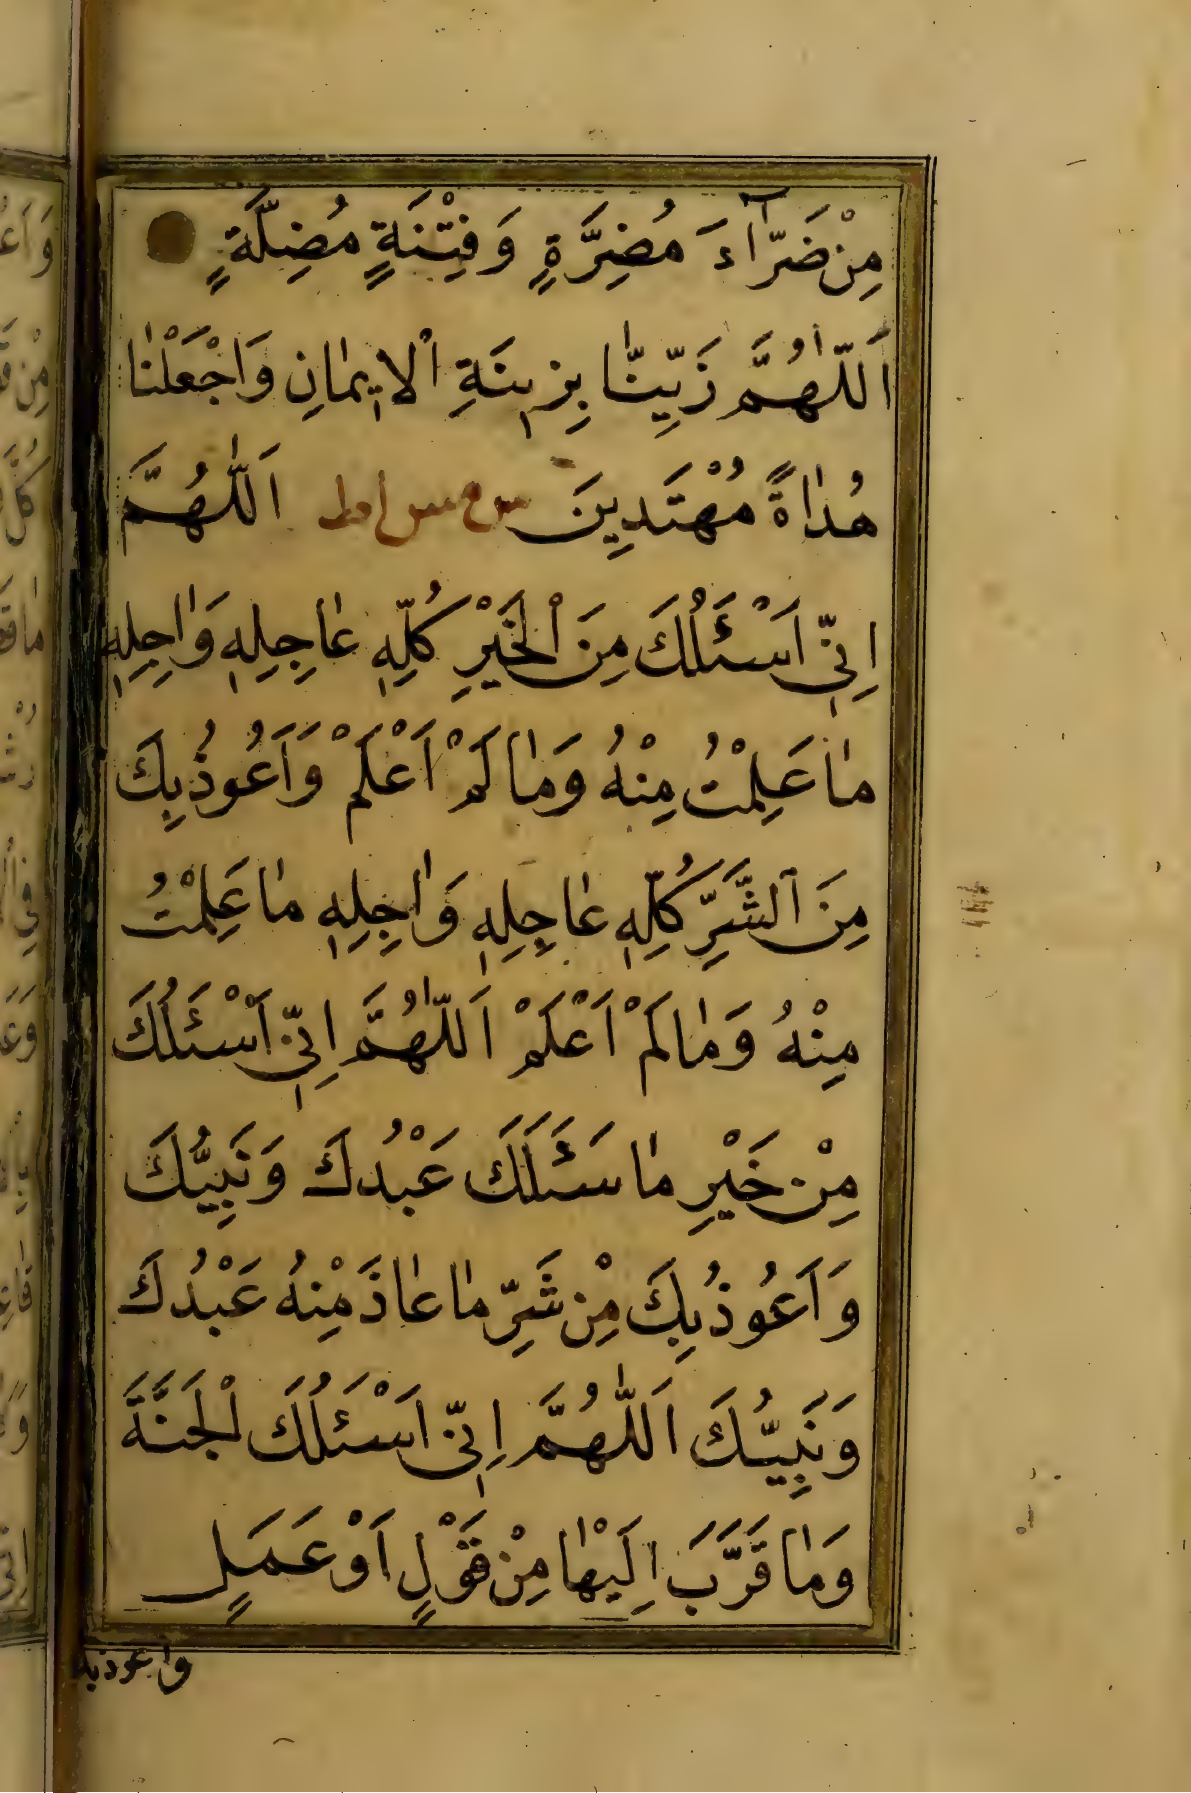 مِنْ ضَرَّآءَ مُضِرَّةٍ وَفِتْنَةٍ مُضِلَّةٍ
اَللّٰهُمَّ زَيِّنّٰا بِزٖينَةِ الْاٖيمٰانِ وَاجْعَلْنٰا
هُدٰاةً مُهْتَدِينَ س مس اط اَللّٰهُمَّ
اِنّٖي اَسْئَلُكَ مِنَ الْخَيْرِ كُلِّهٖ عٰاجِلِهٖ وَاٰجِلِهٖ
مٰا عَلِمْتُ مِنْهُ وَمٰا لَمْ اَعْلَمْ وَاَعُوذُ بِكَ
مِنَ الشَّرِّ كُلِّهٖ عٰاجِلِهٖ وَاٰجِلِهٖ مٰا عَلِمْتُ
مِنْهُ وَمٰا لَمْ اَعْلَمْ اَللّٰهُمَّ اِنّٖي اَسْئَلُكَ
مِنْ خَيْرِ مٰا سَئَلَكَ عَبْدُكَ وَنَبِيُّكَ
وَاَعُوذُ بِكَ مِنْ شَرِّ مٰا عٰاذَ مِنْهُ عَبْدُكَ
وَنَبِيُّكَ اَللّٰهُمَّ اِنّٖي اَسْئَلُكَ الْجَنَّةَ
وَمٰا قَرَّبَ اِلَيْهٰا مِنْ قَوْلٍ اَوْ عَمَلٍ
واعوذ بك